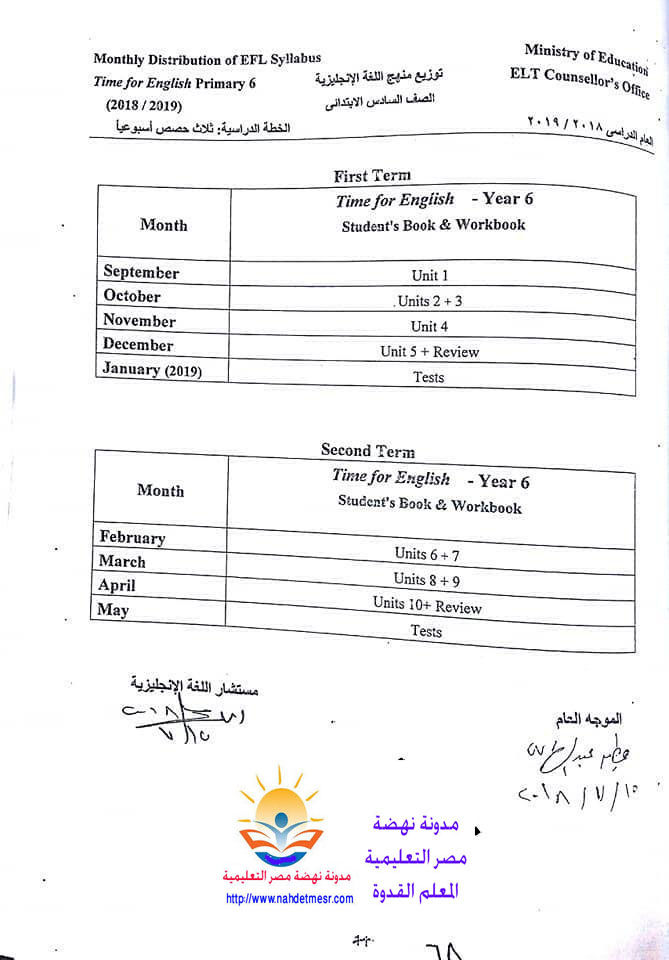 Monthly Distribution of EFL Syllabus
Time for English Primary 6
(2018 / 2019)
توزيع منهج اللغة الإنجليزية
الصف السادس الابتدائى
الخطة الدراسية: ثلاث حصص أسبوعياً
Ministry of Education
ELT Counsellor's Office
العام الدراسى ٢٠١٨ / ٢٠١٩
First Term
Month
Time for English - Year 6
Student's Book & Workbook
September Unit 1
October Units 2 + 3
November Unit 4
December Unit 5 + Review
January (2019) Tests
Second Term
Month
Time for English - Year 6
Student's Book & Workbook
February Units 6 + 7
March Units 8 + 9
April Units 10+ Review
May Tests
مستشار اللغة الإنجليزية
الموجه العام
٢٠١٨ / ٧ / ١٥
مدونة نهضة
مصر التعليمية
المعلم القدوة
مدونة نهضة مصر التعليمية
http://www.nahdetmesr.com
٦٨